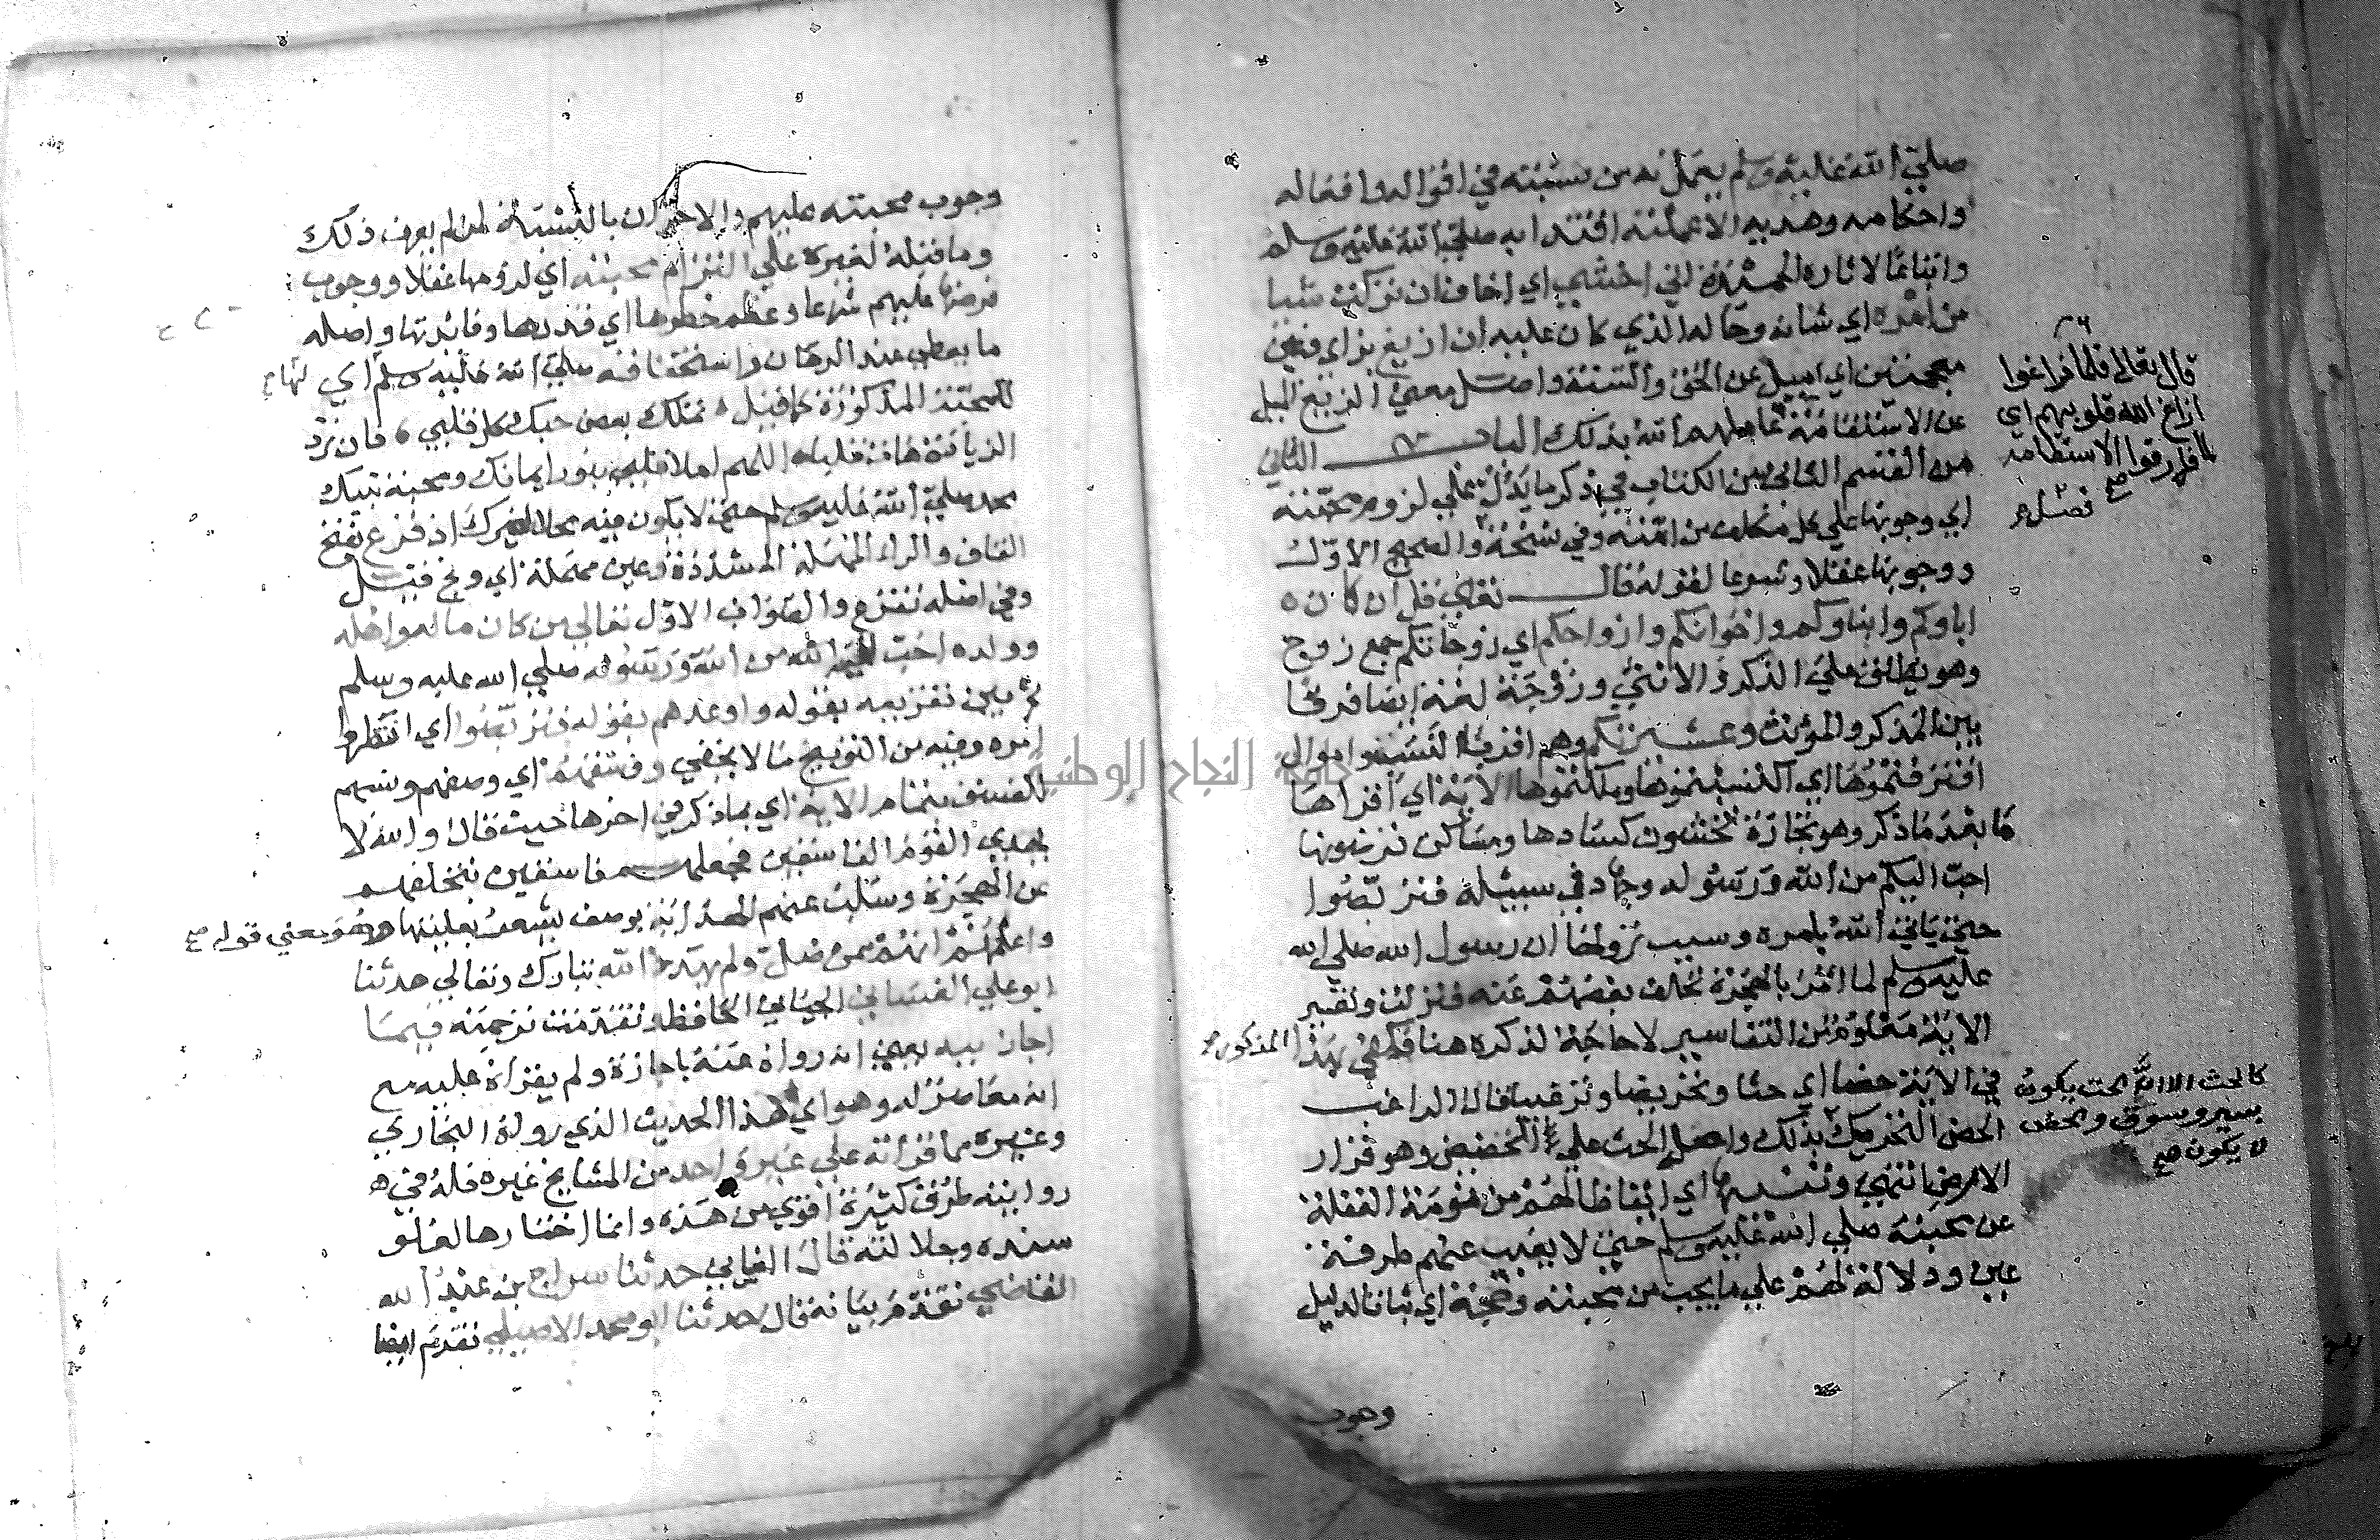 صلى الله عليه وسلم يعمل به من سنته في اقواله وافعاله
واحكامه وهديه الا عملته اقتدا به صلى الله عليه وسلم
واتباعا لاثاره الحميدة اني اخشى اي اخاف ان تركت شيا
من امره اي شانه وحاله الذي كان عليه ان ازيغ بزاي وغين
معجمتين اي اميل عن الحق والسنة واصل معنى الزيغ الميل
عن الاستقامة عاملهم الله بذلك الباب الثاني
من القسم الثاني من الكتاب في ذكر ما يدل على لزوم محبته
اي وجوبها على كل مكلف من امته وفي نسخة والصحيح الاول
ووجوبها عقلا وشرعا لقوله قال تعالى قل ان كان
اباوكم وابناوكم واخوانكم وازواجكم اي زوجاتكم جمع زوج
وهو يطلق على الذكر والانثى وزوجة لغة ايضا فرقا
بين المذكر والمؤنث وعشيرتكم وهم اقربا النسب واموال
اقترفتموها اي اكتسبتموها وملكتموها الاية اي اقراها
ما بعد ما ذكر وهو تجارة تخشون كسادها ومساكن ترضونها
احب اليكم من الله ورسوله وجهاد في سبيله فتربصوا
حتى ياتي الله بامره وسبب نزولها ان رسول الله صلى الله
عليه وسلم لما امر بالهجرة تخلف بعضهم عنه فنزلت وتفسير
الاية معلوم من التفاسير لا حاجة لذكره هنا فكفى بهذا المذكور
في الاية حضا اي حثا وتحريضا وترغيبا قال الراغب
الحض التحريك بذلك واصل الحث على التحضيض وهو قرار
الارض انتهى وتنبيها اي ايقاظا لهم من نومة الغفلة
عن محبته صلى الله عليه وسلم حتى لا يغيب عنهم طرفة
عين ودلالة لهم على ما يجب من محبته وحجة اي بيانا لدليل
وجوب
قال تعالى فلما زاغوا
ازاغ الله قلوبهم اي
لما فارقوا الاستقامة
كالحث الا ان الحث يكون
بسير وسوق والحض
لا يكون صح
وجوب محبته عليهم والاخيران بالنسبة لمن لم يعرف ذلك
وما قبله لغيره على التزام محبته اي لزومها عقلا ووجوب
فرضها عليهم شرعا وعظم خطرها اي قدرها وفائدتها واصله
ما يعطى عند الرهان واستحقاقه صلى الله عليه وسلم اي لها
للمحبة المذكورة كما قيل تملك بعض حبك كل قلبي فان ترد
الزيادة هات قلبا اللهم املا قلبي بنور ايمانك ومحبة نبيك
محمد صلى الله عليه وسلم حتى لا يكون فيه محلا لغيرك اذ قرع بفتح
القاف والراء المهملة المشددة وعين مهملة اي وبخ فقيل
وفي اصله تقرع والصواب الاول تعالى من كان ماله واهله
وولده احب اليه من الله ورسوله صلى الله عليه وسلم
ثم بين تقريعه بقوله واوعدهم بقوله فتربصوا اي انتظروا
امره وفيه من التوبيخ ما لا يخفى وفسقهم اي وصفهم ونسبهم
للفسق بتمام الاية اي بما ذكر في اخرها حيث قال والله لا
يهدي القوم الفاسقين فجعلهم فاسقين بتخلفهم
عن الهجرة وسلب عنهم الهداية بوصف يشعر بعليتها وهو معنى قوله صح
واعلمهم انهم ممن ضل ولم يهده الله تبارك وتعالى حدثنا
ابو علي الغساني الجياني الحافظ وتقدمت ترجمته فيما
اجازنيه يعني انه رواه عنه باجازة ولم يقراه عليه مع
انه معاصر له وهو اي هذا الحديث الذي رواه البخاري
وغيره مما قراته على غير واحد من المشايخ غيره فله في
روايته طرق كثيرة اقوى من هذه وانما اختارها لعلو
سنده وجلالته قال الغساني حدثنا سراج بن عبد الله
القاضي تقدم بيانه قال حدثنا ابو محمد الاصيلي تقدم ايضا
جامعة النجاح الوطنية